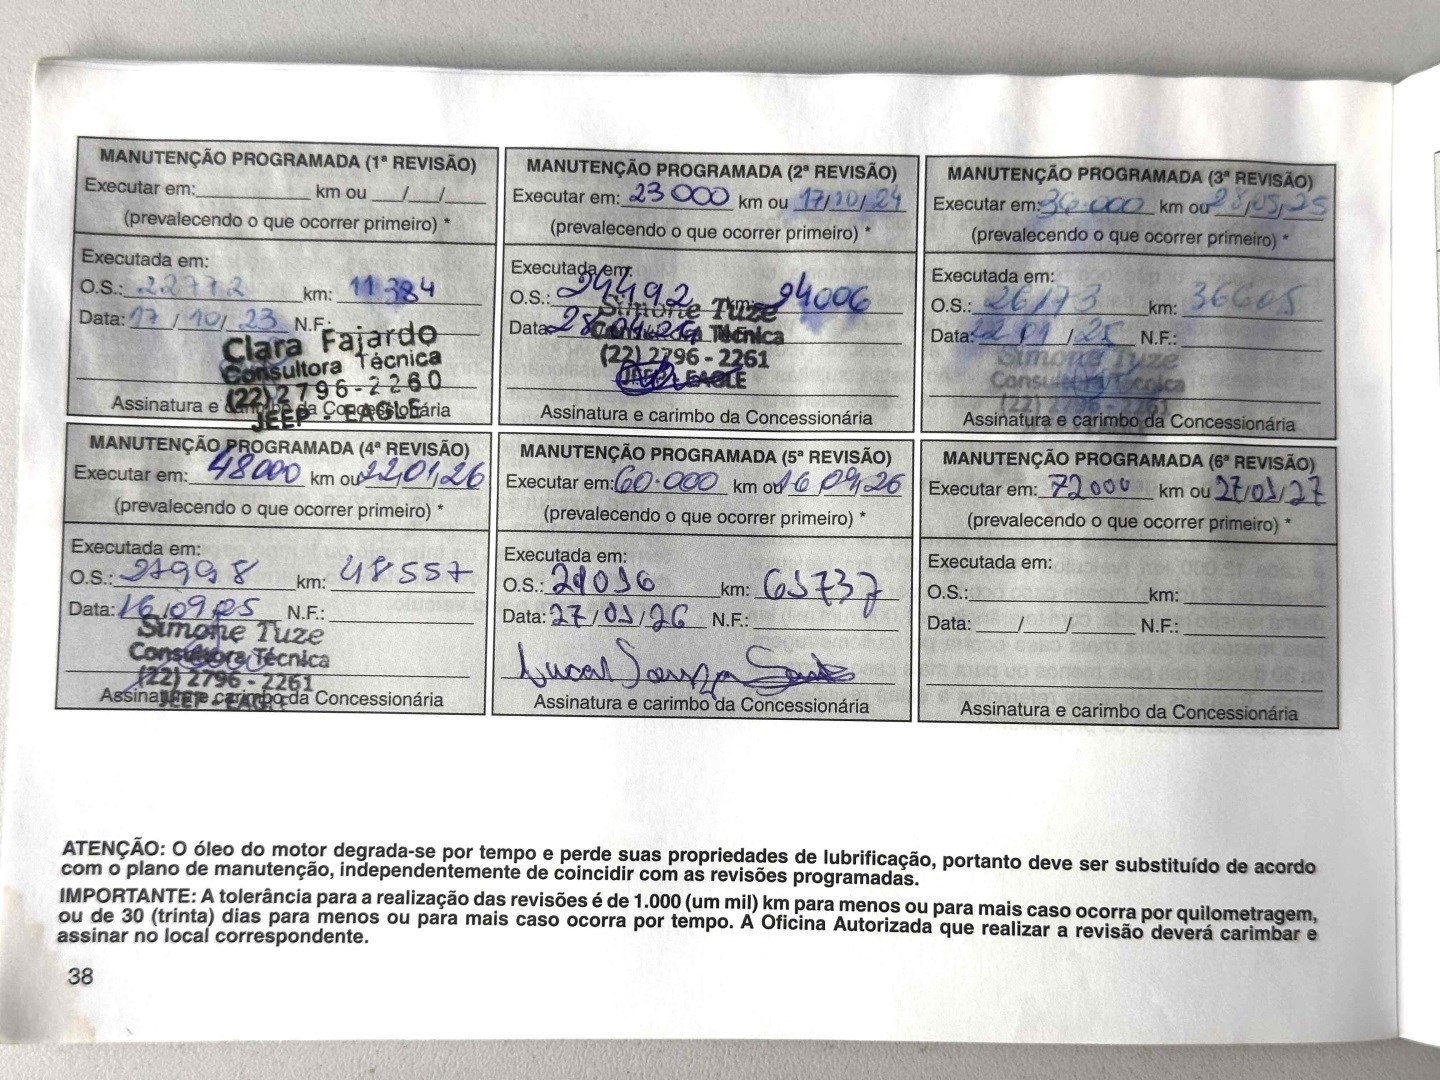 MANUTENÇÃO PROGRAMADA (1ª REVISÃO)
Executar em: km ou / /
(prevalecendo o que ocorrer primeiro) *
Executada em:
O.S.: 22772 km: 11 384
Data: 17 / 10 / 23 N.F.:
Clara Fajardo
Consultora Técnica
(22) 2796-2260
JEEP - EAGLE
Assinatura e carimbo da Concessionária
MANUTENÇÃO PROGRAMADA (2ª REVISÃO)
Executar em: 23 000 km ou 17/10/24
(prevalecendo o que ocorrer primeiro) *
Executada em:
O.S.: 24492 km: 24006
Data:
Simone Tuze
Consultora Técnica
(22) 2796 - 2261
JEEP - EAGLE
Assinatura e carimbo da Concessionária
MANUTENÇÃO PROGRAMADA (3ª REVISÃO)
Executar em: 36.000 km ou 28/05/25
(prevalecendo o que ocorrer primeiro) *
Executada em:
O.S.: 26173 km: 36605
Data: 22 01 / 25 N.F.:
Simone Tuze
Consultora Técnica
(22) 2796 - 2261
Assinatura e carimbo da Concessionária
MANUTENÇÃO PROGRAMADA (4ª REVISÃO)
Executar em: 48000 km ou 22/01/26
(prevalecendo o que ocorrer primeiro) *
Executada em:
O.S.: 27998 km: 48557
Data: 16/09/25 N.F.:
Simone Tuze
Consultora Técnica
(22) 2796 - 2261
JEEP - EAGLE
Assinatura e carimbo da Concessionária
MANUTENÇÃO PROGRAMADA (5ª REVISÃO)
Executar em: 60.000 km ou 16/09/26
(prevalecendo o que ocorrer primeiro) *
Executada em:
O.S.: km:
Data: 27/01/26 N.F.:
Lucas Souza
Assinatura e carimbo da Concessionária
MANUTENÇÃO PROGRAMADA (6ª REVISÃO)
Executar em: 72000 km ou 27/01/27
(prevalecendo o que ocorrer primeiro) *
Executada em:
O.S.: km:
Data: / / N.F.:
Assinatura e carimbo da Concessionária
ATENÇÃO: O óleo do motor degrada-se por tempo e perde suas propriedades de lubrificação, portanto deve ser substituído de acordo
com o plano de manutenção, independentemente de coincidir com as revisões programadas.
IMPORTANTE: A tolerância para a realização das revisões é de 1.000 (um mil) km para menos ou para mais caso ocorra por quilometragem,
ou de 30 (trinta) dias para menos ou para mais caso ocorra por tempo. A Oficina Autorizada que realizar a revisão deverá carimbar e
assinar no local correspondente.
38